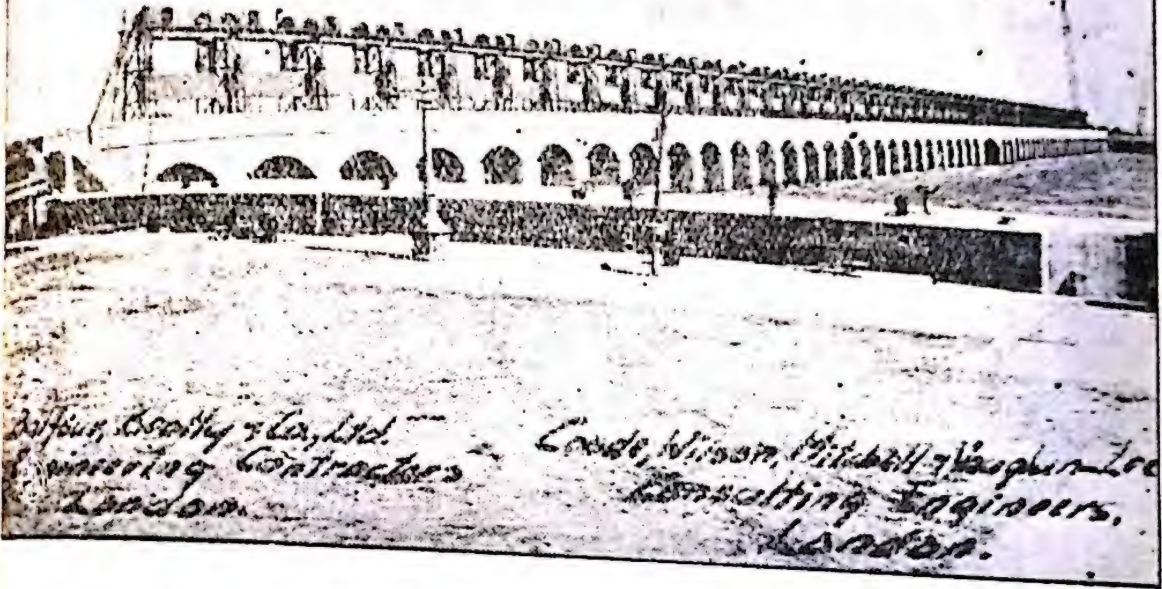 Balfour, Beatty & Co., Ltd.
Engineering Contractors
London.
Coode, Wilson, Mitchell & Vaughan-Lee
Consulting Engineers,
London.